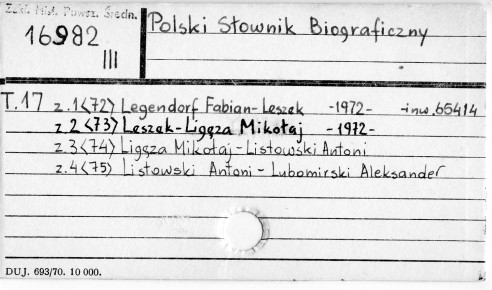 Zakł. Hist. Powsz. Średn.
16982
III
Polski Słownik Biograficzny
T.17 z.1<72) Legendorf Fabian-Leszek -1972- -inw.65414
z.2<73) Leszek-Ligęza Mikołaj -1972-
z.3<74) Ligęza Mikołaj-Listowski Antoni
z.4<75) Listowski Antoni-Lubomirski Aleksander
DUJ. 693/70. 10 000.